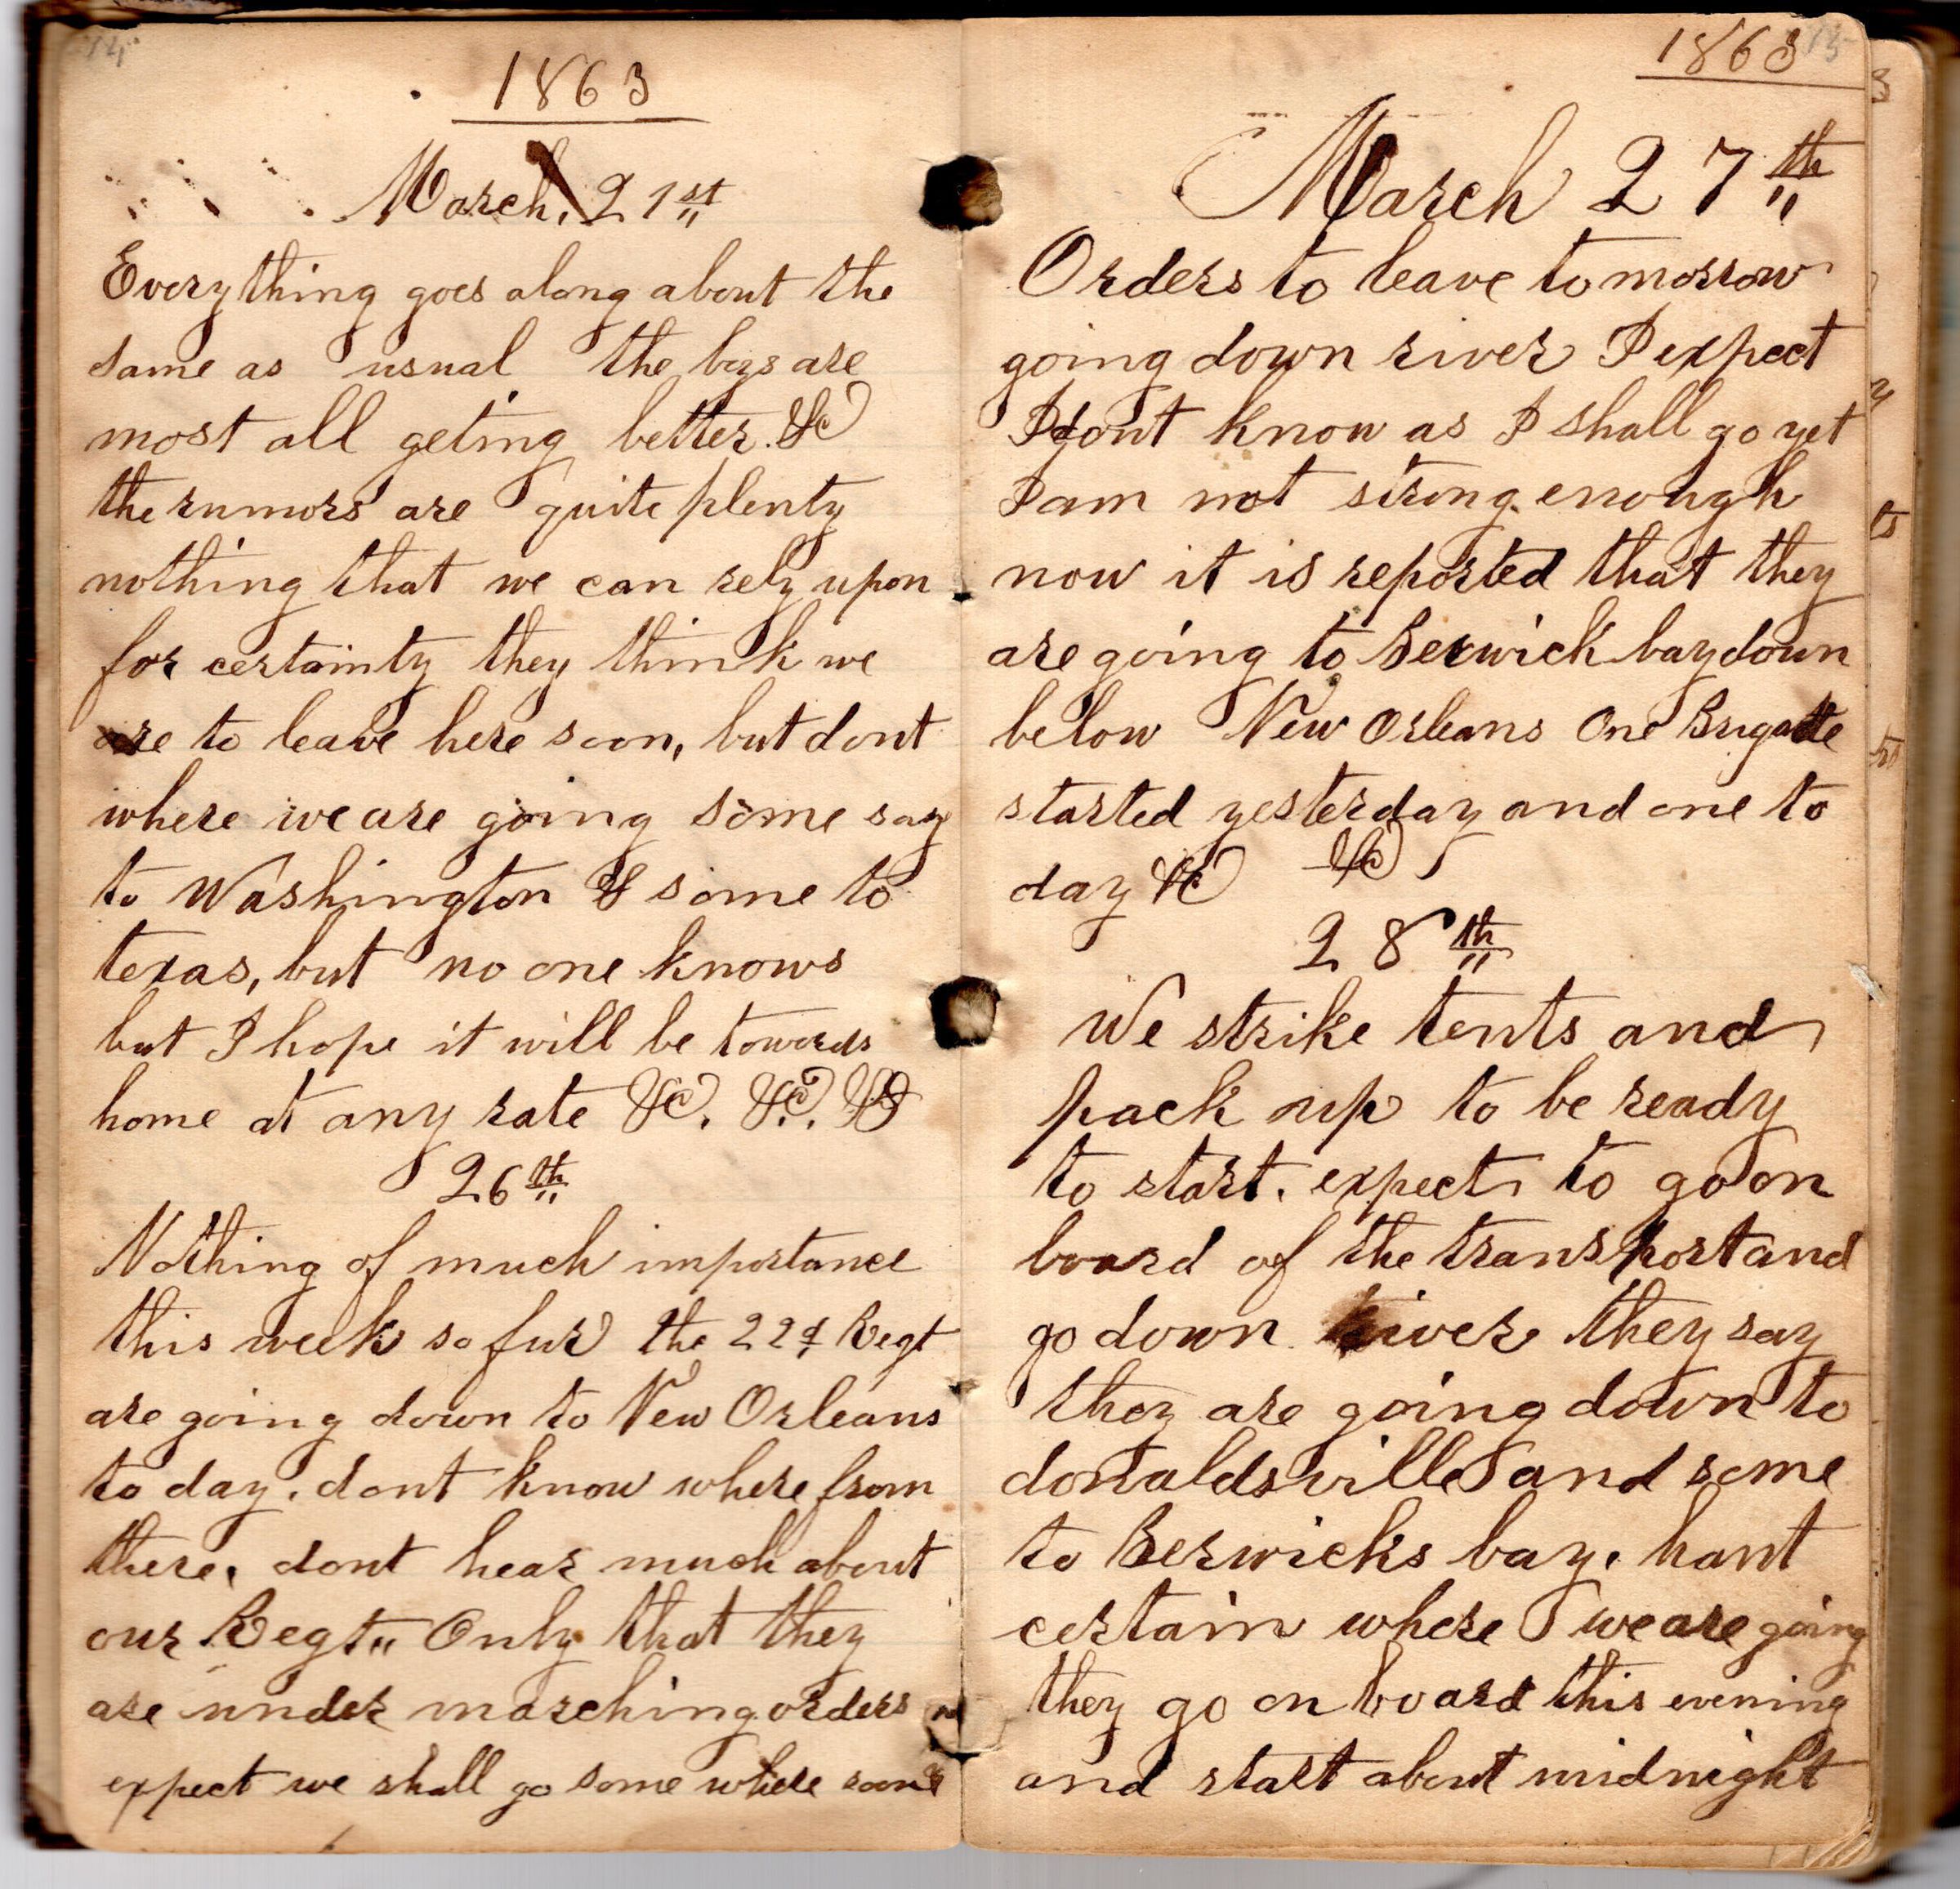 14
1863
March, 21st
Everything goes along about the
same as usual the boys are
most all geting better. &c
the rumors are quite plenty
nothing that we can rely upon
for certainty they think we
are to leave here soon, but dont
where we are going some say
to Washington & some to
texas, but no one knows
but I hope it will be towards
home at any rate &c. &c. &c
26th
Nothing of much importance
this week so fur the 22d Regt
are going down to New Orleans
to day. dont know where from
there. dont hear much about
our Regt" Only that they
are under marching orders
expect we shall go some where soon
1863
15
March 27th
Orders to leave tomorrow
going down river I expect
I dont know as I shall go yet
I am not strong enough
now it is reported that they
are going to Berwick bay down
below New Orleans One Brigade
started yesterday and one to
day &c &c
28th
We strike tents and
pack up to be ready
to start. expect to go on
board of the transport and
go down River they say
they are going down to
donaldsville and some
to Berwicks bay. hant
certain where we are going
they go on board this evening
and start about midnight